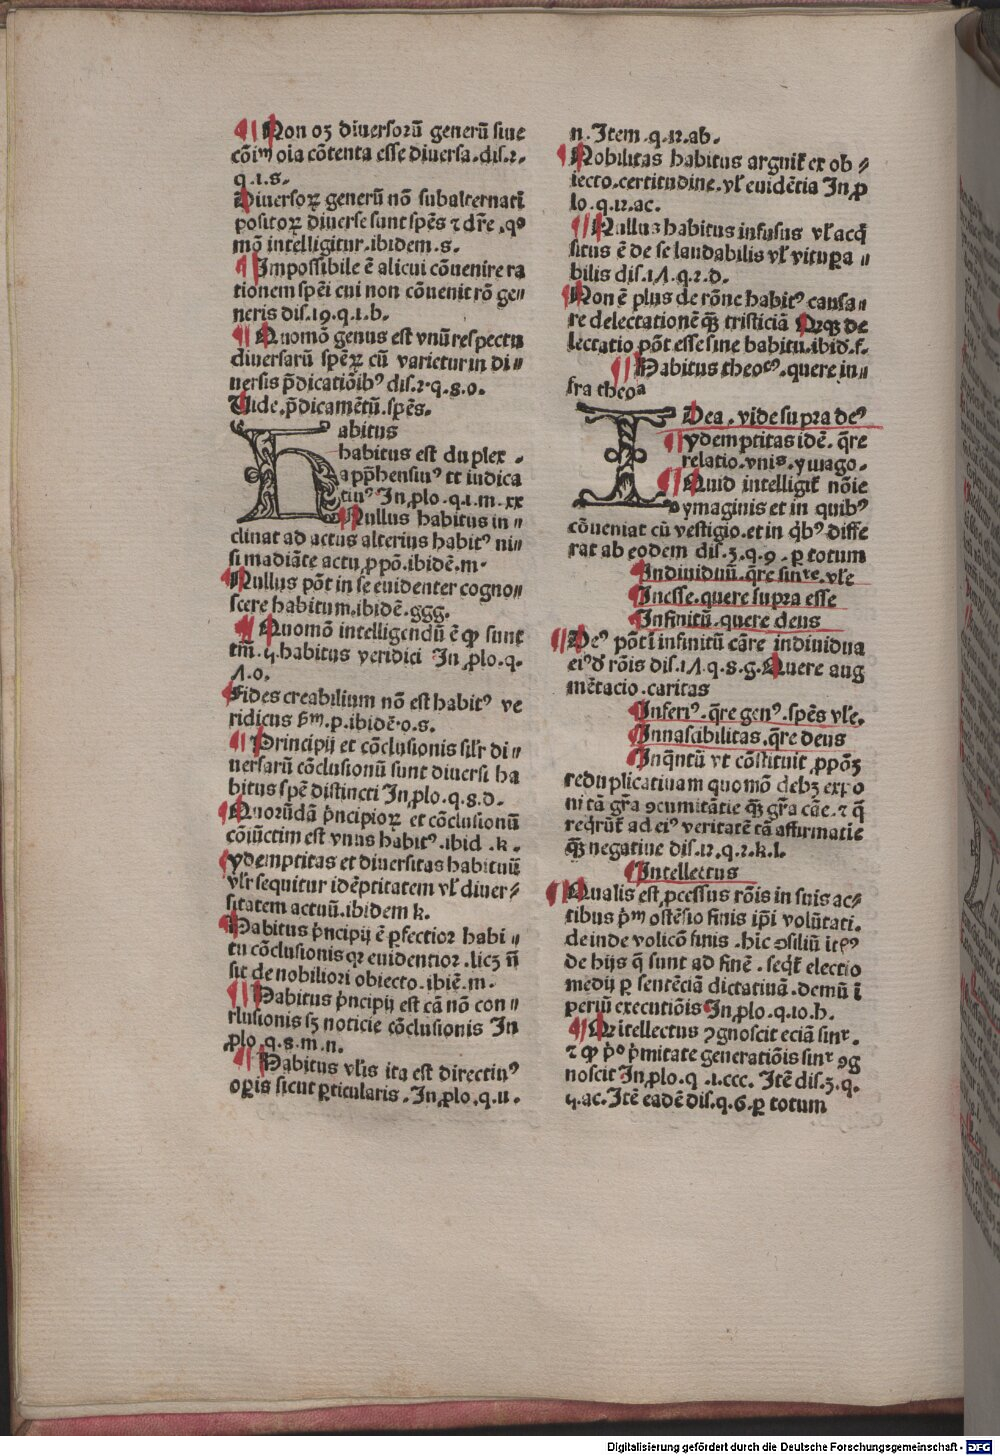 ¶ Non oꝫ diuersorū generū siue
cōiᵐ oīa cōtenta esse diuersa.dis.2.
q.1.s.
Diuersoꝝ generū nō subalternatī
positoꝝ diuerse sunt spēs ⁊ dr̄e .qͦ
mō intelligitur.ibidem.s.
¶ Impossibile ē alicui cōuenire ra
tionem spēi cui non cōuenit rō ge⸗
neris dis.19.q.1.b.
¶ Quomō genus est vnū respectu
diuersarū spēꝝ cū varietur in di⸗
uersis p̄dicatiōibꝰ dis.2.q.8.o.
Vide.p̄dicamētū.spēs.
Habitus
habitus est duplex .
appr̄hensiuꝰ et iudica
tiuꝰ In ꝓlo.q.1.m.xx
¶ Nullus habitus in⸗
clinat ad actus alterius habitꝰ ni⸗
si madiāte actu ꝓpō.ibidē.m.
Nullus pōt in se euidenter cogno⸗
scere habitum.ibidē.ggg.
¶ Quomō intelligendū ē ꝙ sunt
tm̄.4.habitus veridici In ꝓlo.q.
1.o.
Fides creabilium nō est habitꝰ ve
ridicus sᵐ.p.ibidē.o.s.
¶ Principij et cōclusionis sil'r di⸗
uersarū cōclusionū sunt diuersi ha
bitus spē distincti In ꝓlo.q.8.d.
Quorūdā p̄ncipioꝝ et cōclusionū
cōiūctim est vnus habitꝰ.ibid.k.
ydemptitas et diuersitas habituū
vl'r sequitur idēptitatem vl' diuer⸗
sitatem actuū.ibidem k.
Habitus p̄ncipij ē ꝑfectior habi⸗
tu cōclusionis qꝛ euidentior.licꝫ n̄
sit de nobiliori obiecto.ibiē.m.
¶ Habitus p̄ncipij est cā nō con⸗
clusionis sꝫ noticie cōclusionis In
ꝓlo.q.8.m.n.
¶ Habitus vl'is ita est directiuꝰ
oꝑis sicut ꝑticularis.In ꝓlo.q.11.
n.Item.q.12.ab.
Nobilitas habitus arguit' ex ob⸗
iecto.certitudine.vl' euidētia In ꝓ
lo.q.12.ac.
¶ Nullus habitus infusus vl' acq̄
situs ē de se laudabilis vl' vitupa⸗
bilis dis.17.q.2.d.
Non ē plus de rōne habitꝰ causa⸗
re delectationē qꝫ tristiciā Neqꝫ de
lectatio pōt esse sine habitu.ibid.f.
¶ Habitus theocꝰ.quere in⸗
fra theoᵃ
IDea .vide supra deꝰ
ydemptitas idē. q̄re
relatio.vnis.ymago.
¶ Quid intelligit' nōie
ymaginis et in quibꝰ
cōueniat cū vestigio.et in q̄bꝰ diffe
rat ab eodem dis.3.q.9.ꝑ totum
Indiuiduū.q̄re sinʳᵉ.vl'e
Inesse.quere supra esse
Infinitū.quere deus
¶ Deꝰ pōt ī infinitū cāre indiuidua
eiꝰd' rōis dis.17.q.8.g.Quere aug
mētacio.caritas
Inferiꝰ.q̄re genꝰ.spēs vl'e.
Innascibilitas.q̄re deus
Inq̄ntū vt cōstituit ꝓpōꝫ
reduplicatiuam quomō debꝫ expo
ni tā gr̄a ꝯcumitātie qꝫ gr̄a cāe.⁊ q̄
reqrūt' ad eiꝰ veritatē tā affirmatie
qꝫ negatiue dis.12.q.2.k.l.
Intellectus
¶ Qualis est ꝓcessus rōis in suis ac⸗
tibus p̄m ostēsio finis ip̄i volūtati.
deinde volicō finis .hīc ꝯsiliū
de hijs q̄ sunt ad finē .seq̄t' electio
medij ꝑ sentēciā dictatiuā.demū ī
periū executiōis In ꝓlo.q.10.h.
¶ Qꝛ ītellectus ꝯgnoscit eciā sinʳ.
⁊ ꝙ p̄ᵒ p̄mitate generatiōis sinʳ ꝯg
noscit In ꝓlo.q.1.ccc. Itē dis.3.q.
4.ac.Itē eadē dis.q.6.ꝑ totum
Digitalisierung gefördert durch die Deutsche Forschungsgemeinschaft - DFG